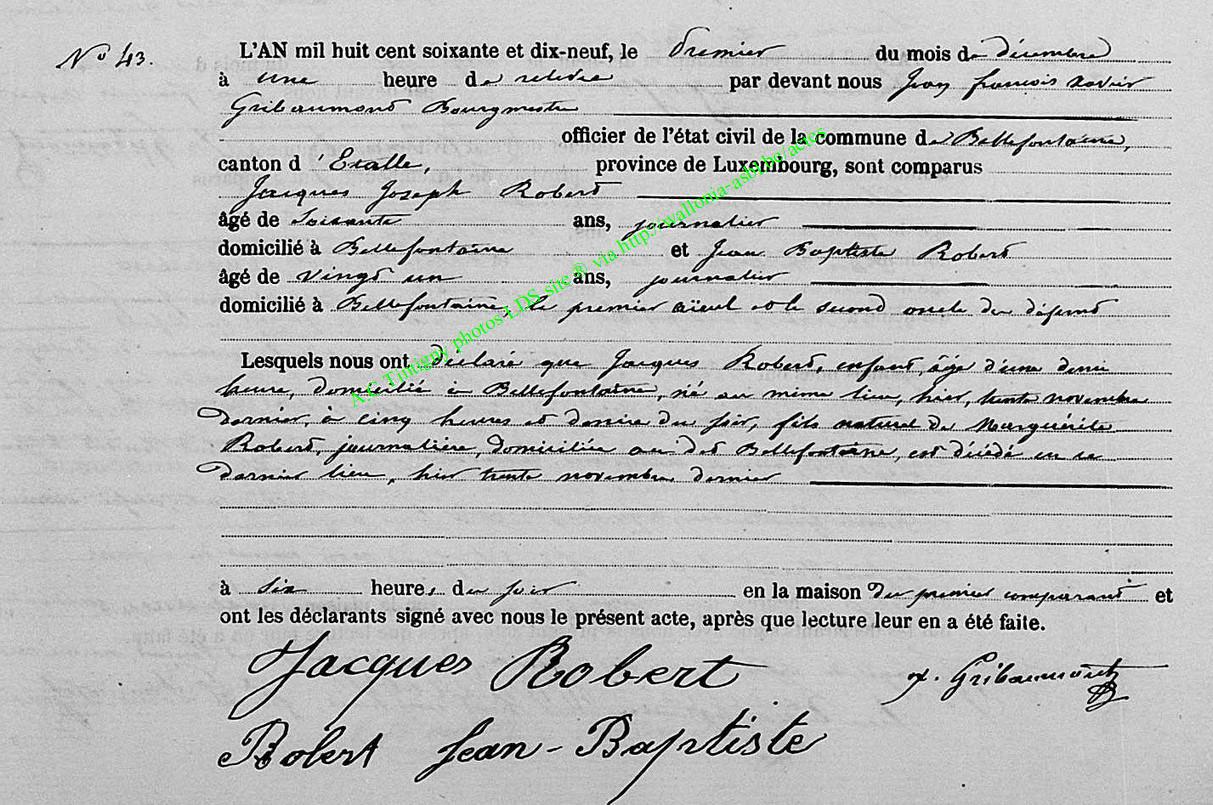 N° 43.
L'AN mil huit cent soixante et dix-neuf, le premier du mois de décembre
à une heure de relevée par devant nous Jean françois xavier
Gribaumont Bourgmestre
officier de l'état civil de la commune de Bellefontaine,
canton d'Etalle, province de Luxembourg, sont comparus
Jacques Joseph Robert
âgé de soixante ans, journalier
domicilié à Bellefontaine et Jean Baptiste Robert
âgé de vingt un ans, journalier
domicilié à Bellefontaine, le premier aïeul et le second oncle du défunt
Lesquels nous ont déclaré que Jacques Robert, enfant, âgé d'une demi
heure, domicilié à Bellefontaine, né au même lieu, hier, trente novembre
dernier, à cinq heures et demie du soir, fils naturel de Marguérite
Robert, journalière, domiciliée au dit Bellefontaine, est décédé en ce
dernier lieu, hier trente novembre dernier
à six heures du soir en la maison du premier comparant et
ont les déclarants signé avec nous le présent acte, après que lecture leur en a été faite.
Jacques Robert x. Gribaumont
Robert Jean-Baptiste
A.G Tintigny photos LDS site ® via http://wallonia-asbl.be/actes